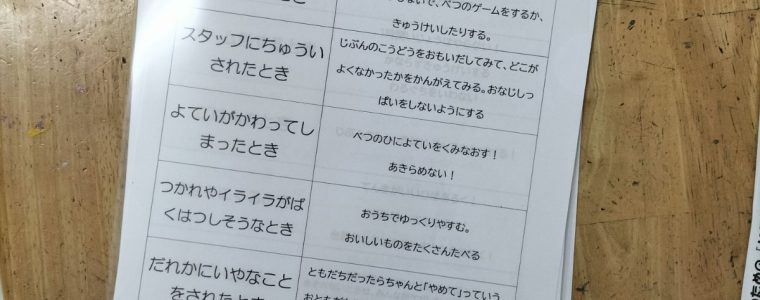 とき
しないで、べつのゲームをするか、
きゅうけいしたりする。
スタッフにちゅうい
されたとき
じぶんのこうどうをおもいだしてみて、どこが
よくなかったかをかんがえてみる。おなじしっ
ぱいをしないようにする
よていがかわってし
まったとき
べつのひによていをくみなおす！
あきらめない！
つかれやイライラがば
くはつしそうなとき
おうちでゆっくりやすむ。
おいしいものをたくさんたべる
だれかにいやなこと
をされたとき
ともだちだったらちゃんと「やめて」っていう
おともだ
ための